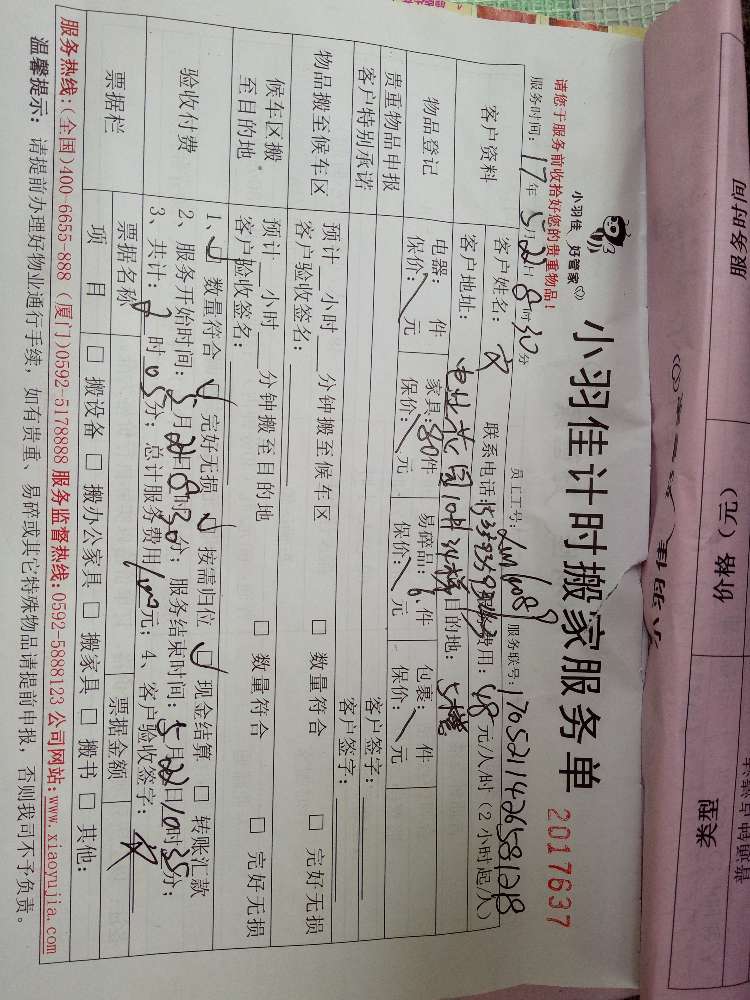 服务时间
价格（元）
类型
小羽佳 好管家
小羽佳计时搬家服务单
2017637
请您于服务前收拾好您的贵重物品！
服务时间：17年5月21日8时30分 员工工号： 服务联号：
客户资料
客户姓名： 联系电话： 费用：48元/人/时（2小时起/人）
客户地址： 目的地：5楼
物品登记
电器： 件 家具：80件 易碎品： 件 包裹： 件
保价：/元 保价：/元 保价：/元 保价：/元
贵重物品申报 客户签字：
客户特别承诺 客户签字：
物品搬至候车区
预计 小时 分钟搬至候车区 □ 数量符合 □ 完好无损
客户验收签名：
候车区搬至目的地
预计 小时 分钟搬至目的地 □ 数量符合 □ 完好无损
客户验收签名：
验收付费
1、☑ 数量符合 ☑ 完好无损 ☑ 按需归位 ☑ 现金结算 □ 转账汇款
2、服务开始时间：5月21日8时30分；服务结束时间：5月21日10时35分；
3、共计：2时05分；总计服务费用 元；4、客户验收签字：
票据栏
票据名称 票据金额
项 目 □ 搬设备 □ 搬办公家具 □ 搬家具 □ 搬书 □ 其他：
服务热线：(全国)400-6655-888 (厦门)0592-5178888 服务监督热线：0592-5888123 公司网站：www.xiaoyujia.com
温馨提示：请提前办理好物业通行手续，如有贵重、易碎或其它特殊物品请提前申报，否则我司不予负责。